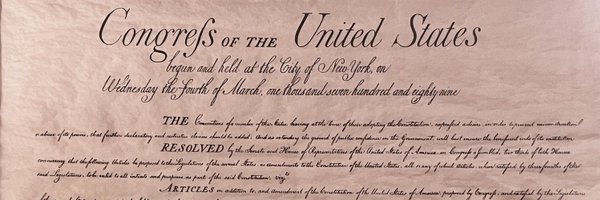 Congreſs OF THE United States
begun and held at the City of New York, on
Wednesday the Fourth of March, one thousand seven hundred and eighty nine
THE Conventions of a number of the States, having at the time of their adopting the Constitution, expreſsed a desire, in order to prevent misconstruction
or abuse of its powers, that further declaratory and restrictive clauses should be added: And as extending the ground of public confidence in the Government, will best ensure the beneficent ends of its institution
RESOLVED by the Senate and House of Representatives of the United States of America, in Congreſs aſsembled, two thirds of both Houses
concurring, that the following Articles be proposed to the Legislatures of the several States, as amendments to the Constitution of the United States, all or any of which Articles, when ratified by three fourths of the
said Legislatures, to be valid to all intents and purposes, as part of the said Constitution; viz.t
ARTICLES in addition to, and Amendment of the Constitution of the United States of America, proposed by Congreſs, and ratified by the Legislatures